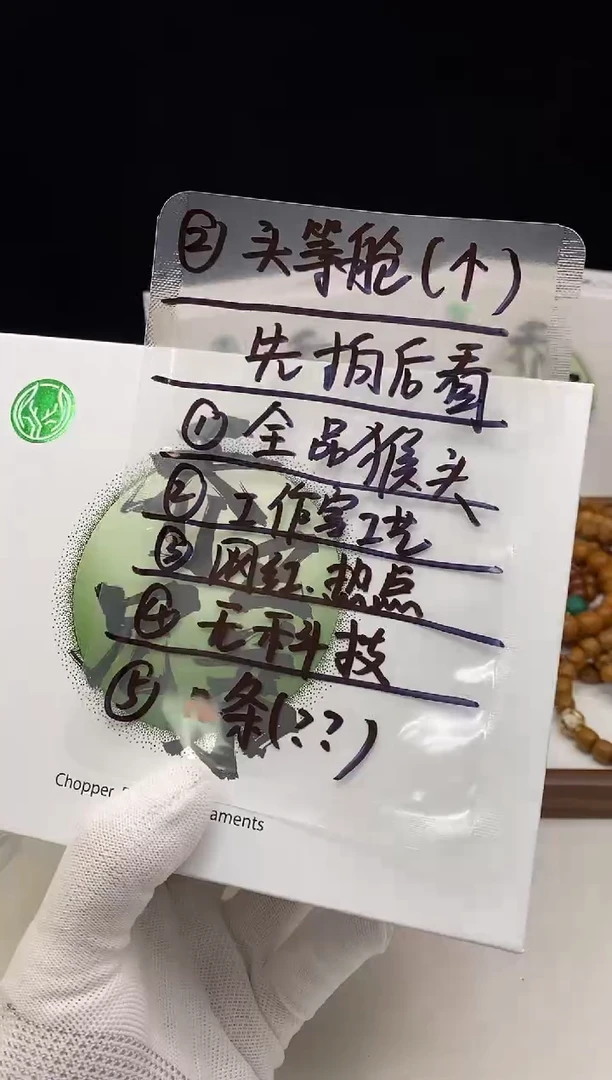 ② 头等舱(个)
先拍后看
① 全品猴头
② 工作室工艺
③ 网红.热点
④ 无科技
⑤ 条(??)
Chopper
aments